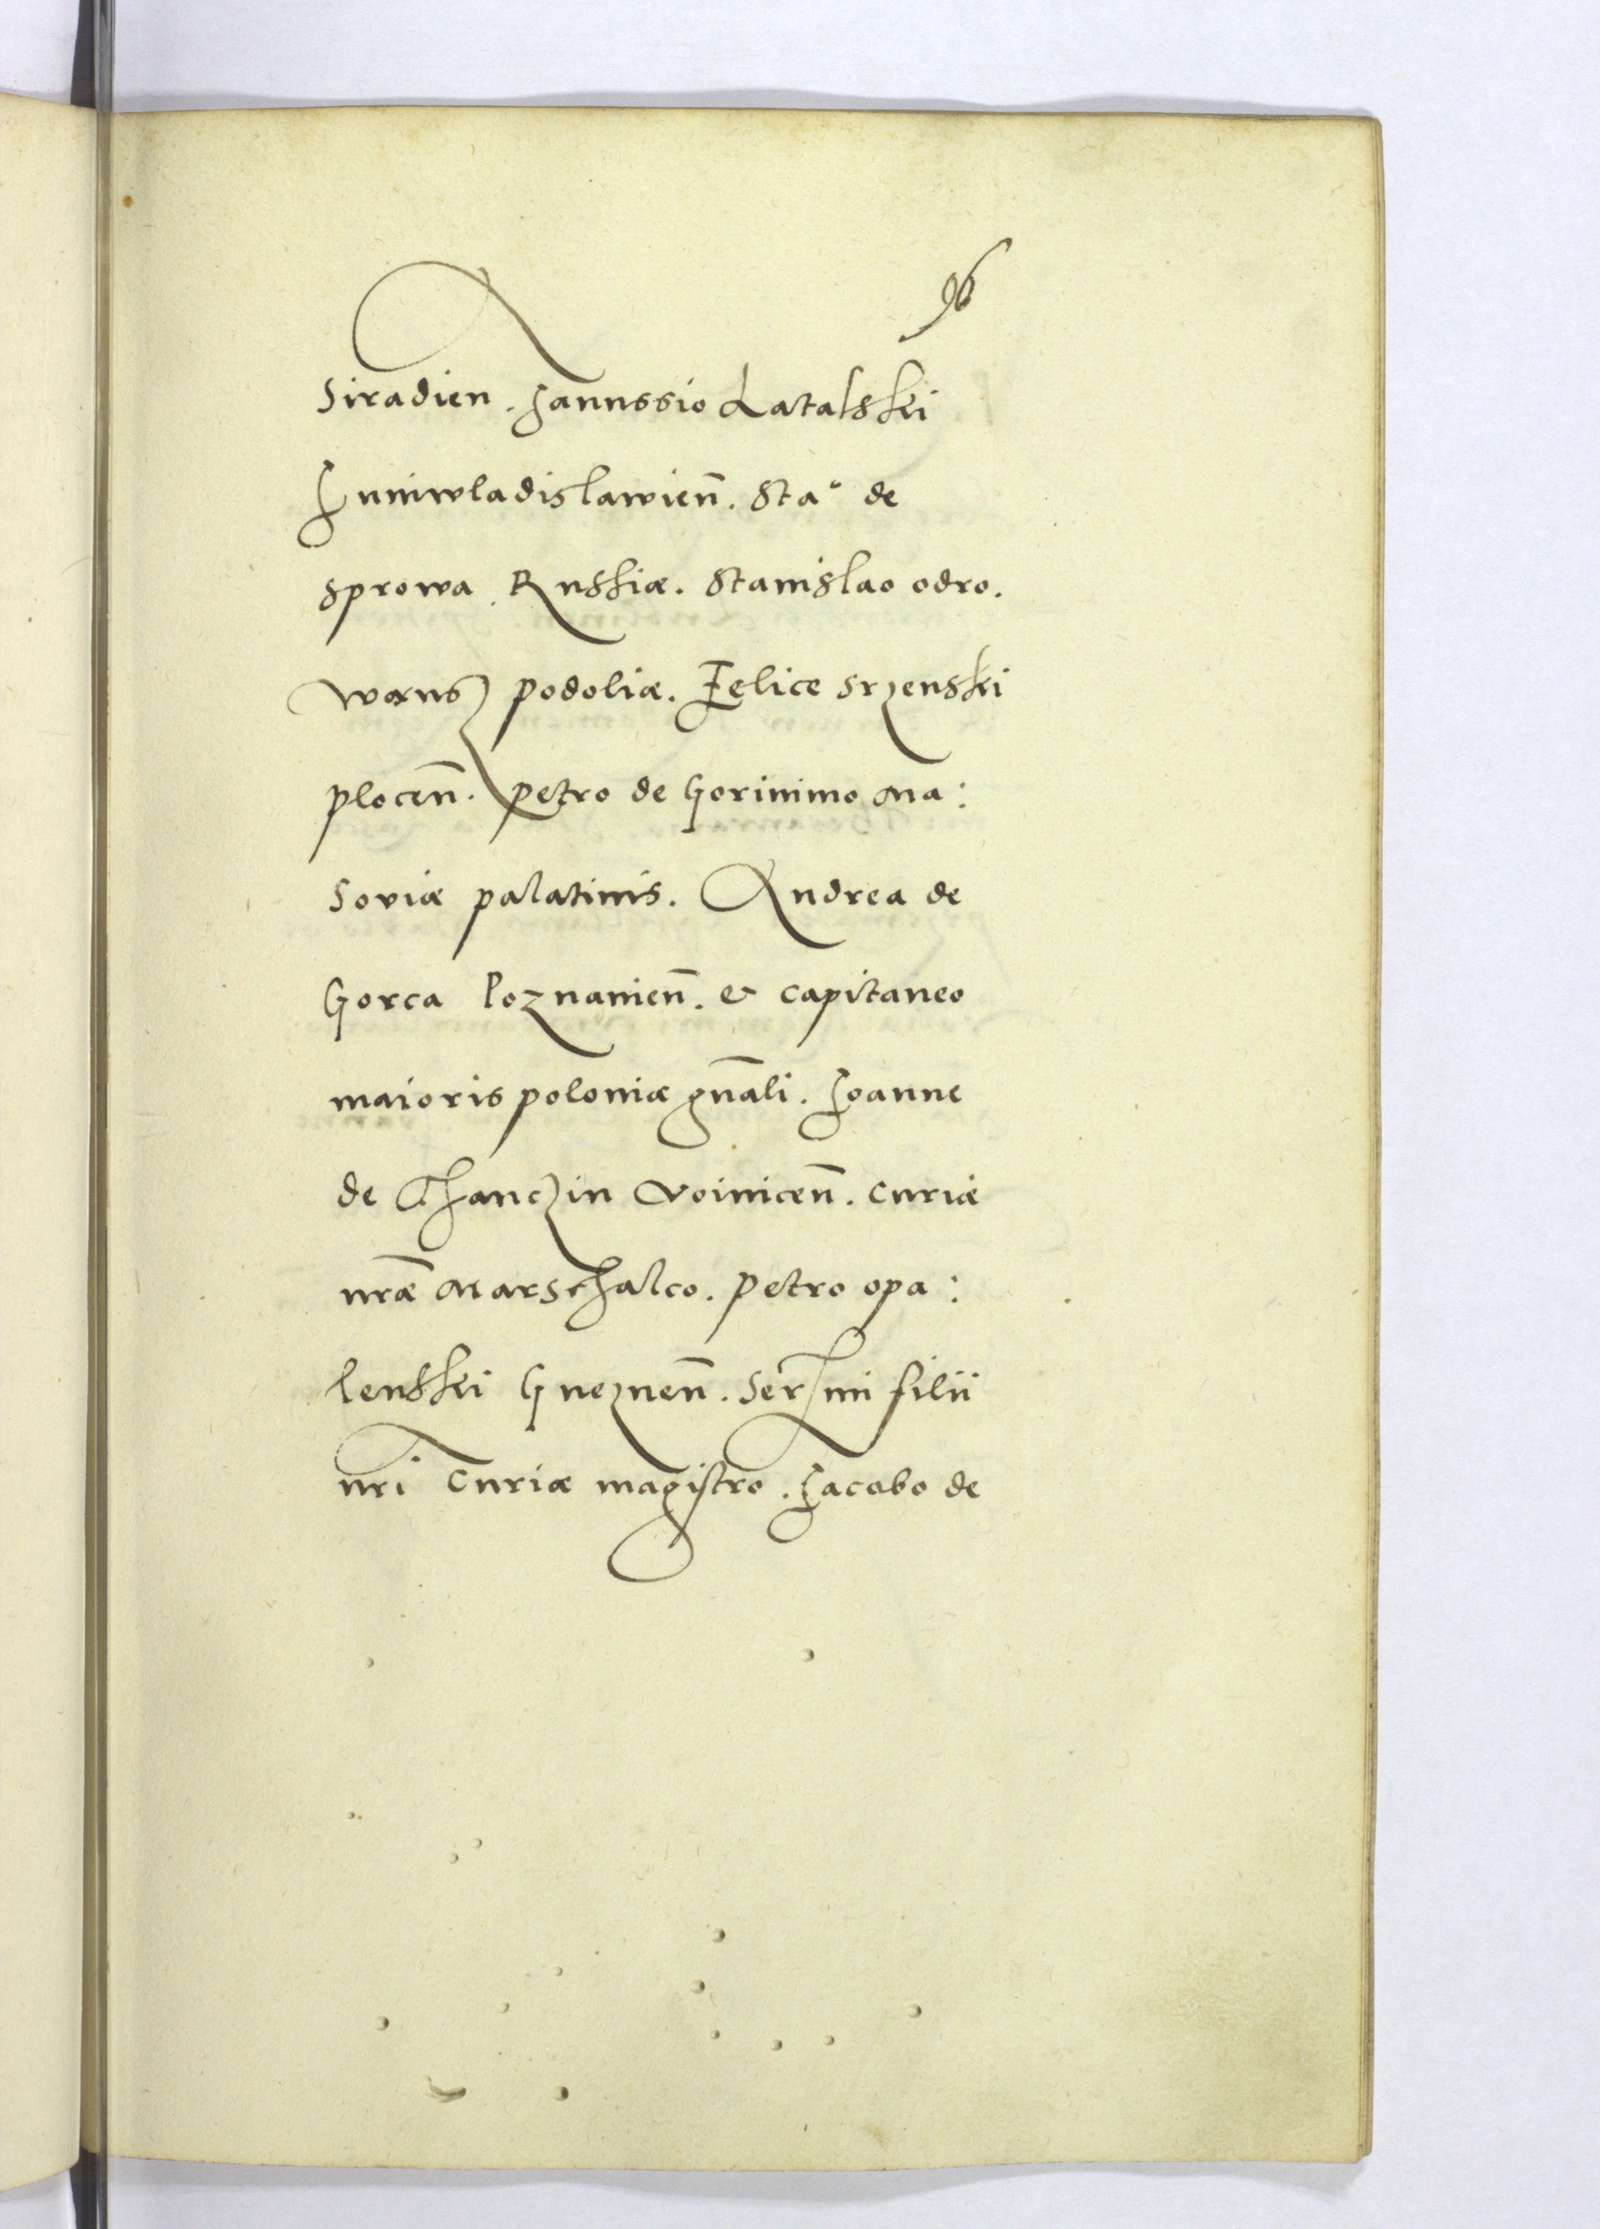 96
Siradien. Janussio Latalski
Juniwladislawień. Sta° de
Sprowa. Russiæ. Stanislao odro.
wæns podoliæ. Felice Srzenski
plocen̄. petro de Gorinino Ma:
soviæ palatinis. Andrea de
Gorca Poznanien̄. & capitaneo
maioris poloniæ gn̄ali. Joanne
de Thanczin Voinicen̄. curiæ
nr̄æ Marschalco. Petro opa:
lenski Gneznen̄. Serͫmi filii
nr̄i Curiæ magistro. Jacobo de